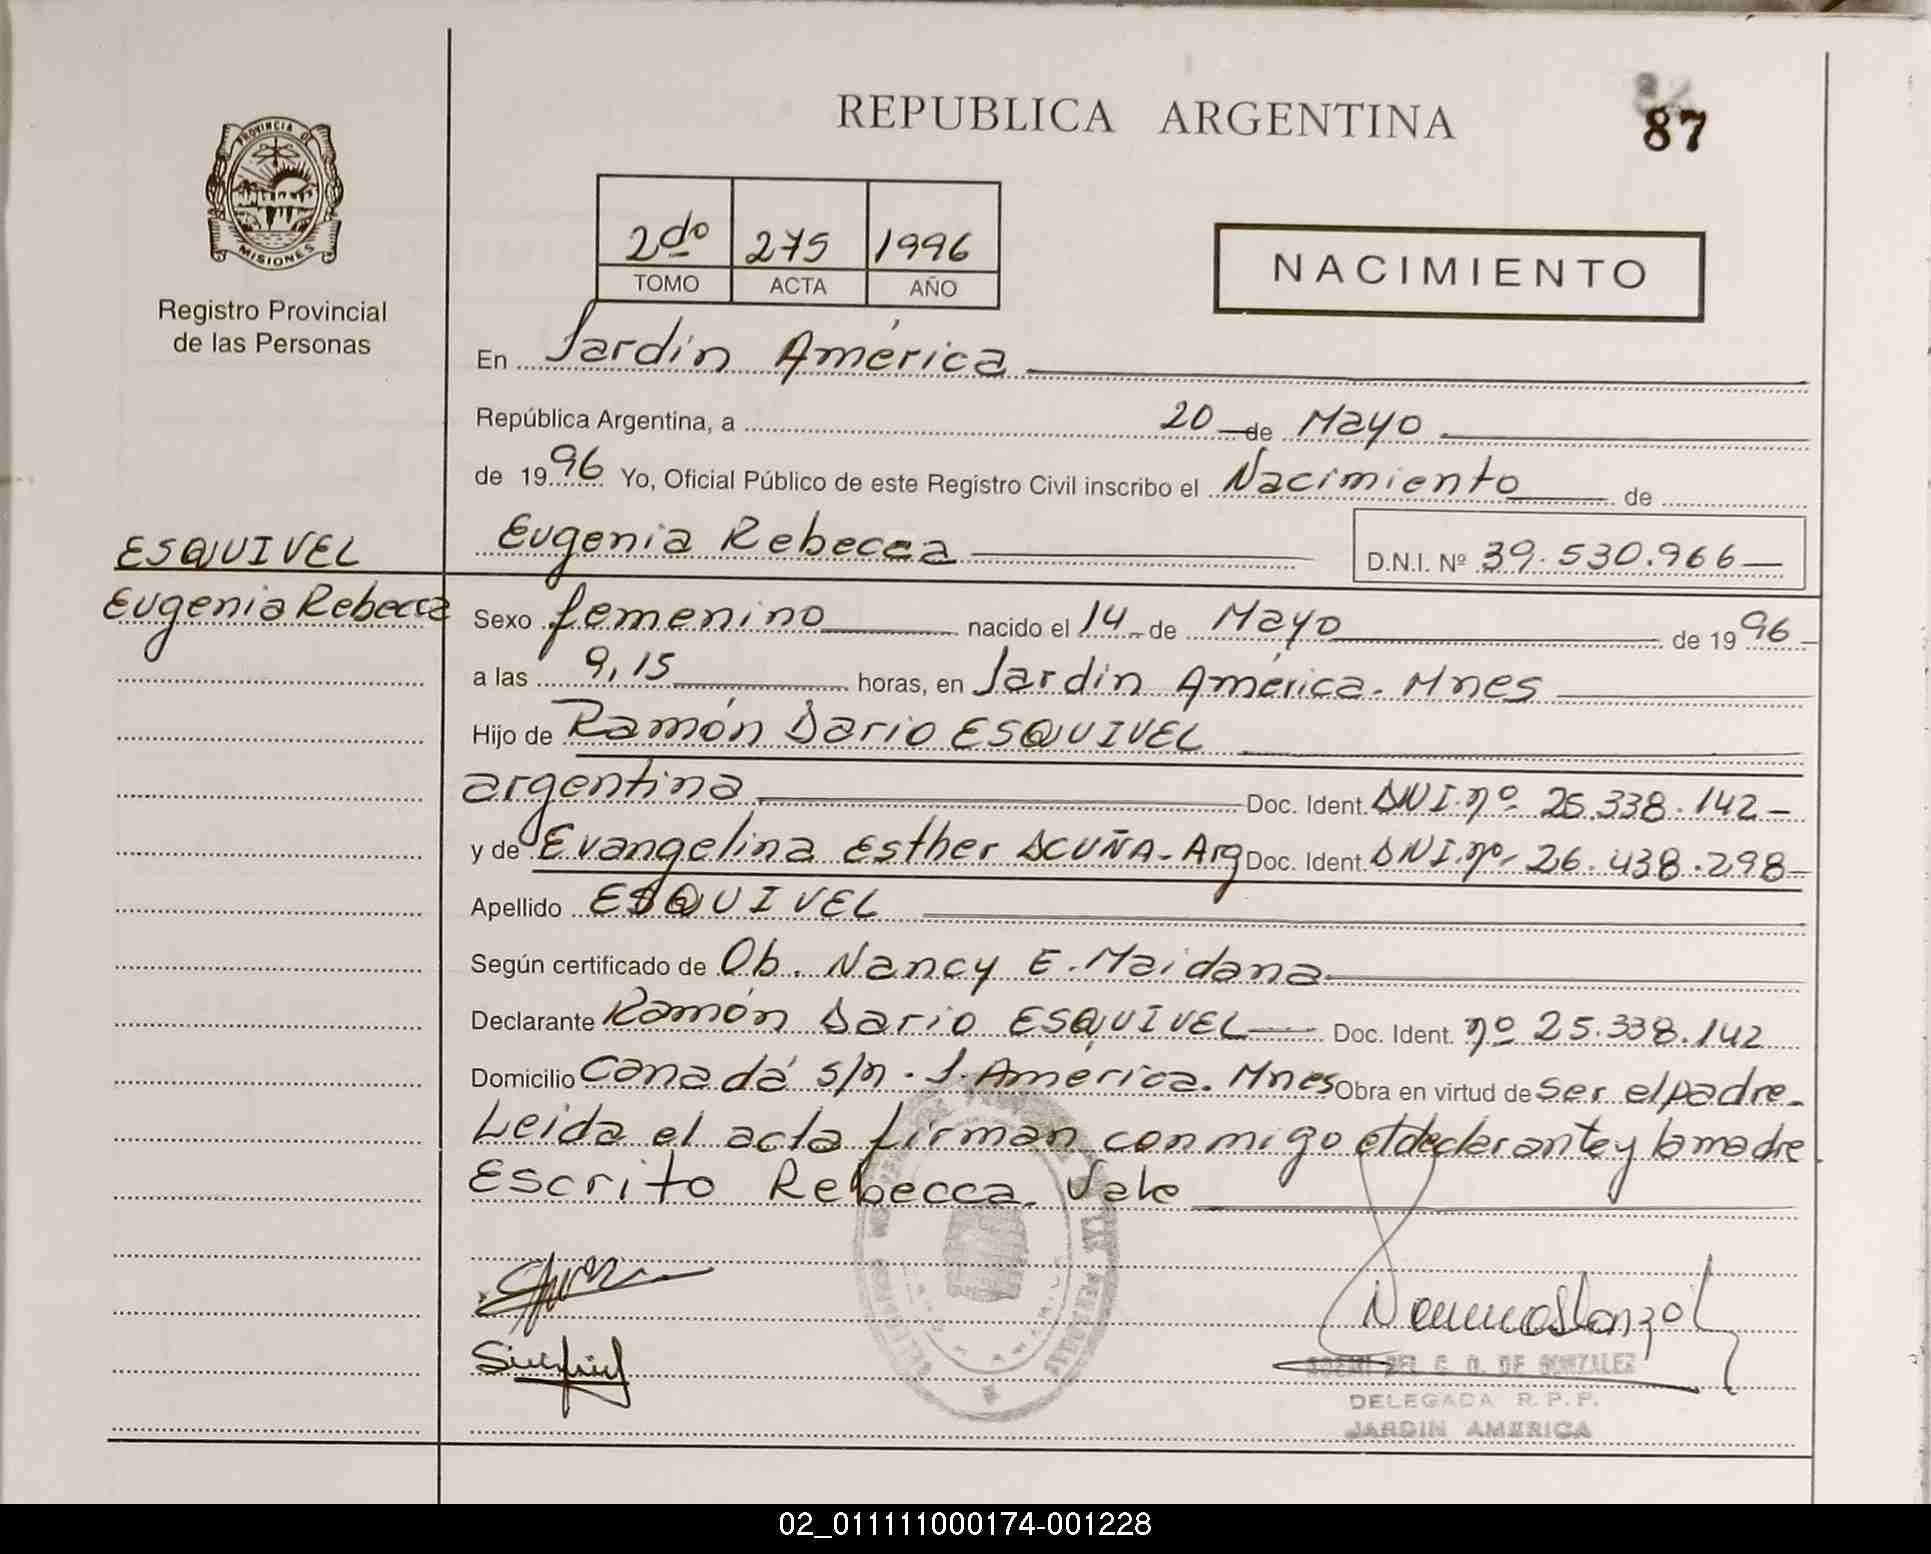 REPUBLICA ARGENTINA
87
PROVINCIA DE
MISIONES
Registro Provincial
de las Personas
2do 275 1996
TOMO ACTA AÑO
NACIMIENTO
En Jardin América
República Argentina, a 20 de Mayo
de 1996 Yo, Oficial Público de este Registro Civil inscribo el Nacimiento de
Eugenia Rebecca D.N.I. Nº 39.530.966
ESQUIVEL
Eugenia Rebecca
Sexo femenino nacido el 14 de Mayo de 1996
a las 9,15 horas, en Jardin América. Mnes
Hijo de Ramón Dario ESQUIVEL
argentina Doc. Ident. DNI.nº 25.338.142
y de Evangelina Esther ACUÑA-Arg Doc. Ident. DNI.nº 26.438.298
Apellido ESQUIVEL
Según certificado de Ob. Nancy E. Maidana
Declarante Ramón Dario ESQUIVEL Doc. Ident. nº 25.338.142
Domicilio Canadá s/n. J. América. Mnes Obra en virtud de ser el padre.
Leida el acta firman conmigo el declarante y la madre.
Escrito Rebecca. Vale
DE GONZALEZ
DELEGADA R.P.P.
JARDIN AMERICA
02_011111000174-001228